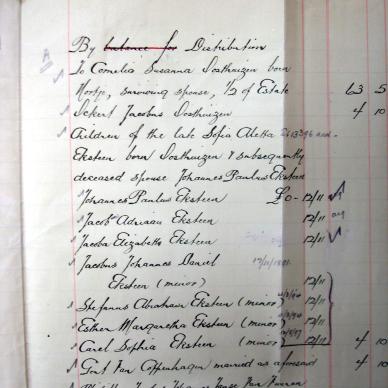 By balance for Distribution
To Cornelia Susanna Oosthuizen born
surviving spouse, 1/2 of Estate 63 5
Ockert Jacobus Oosthuizen 4 10
Children of the late Sofia Aletta
Eksteen born Oosthuizen & subsequently
deceased spouse Johannes Paulus Eksteen
Johannes Paulus Eksteen £0 - 12/11
Jacobs Adriaan Eksteen 12/11
Jacoba Elizabeth Eksteen 12/11
Jacobus Johannes Daniel
Eksteen (minor) 12/11
Stefanus Abraham Eksteen (minor) 12/11
Esther Margaretha Eksteen (minor) 12/11
Carel Sophia Eksteen (minor) 12/11 4 10
van Coppenhagen married as aforesaid 4 10